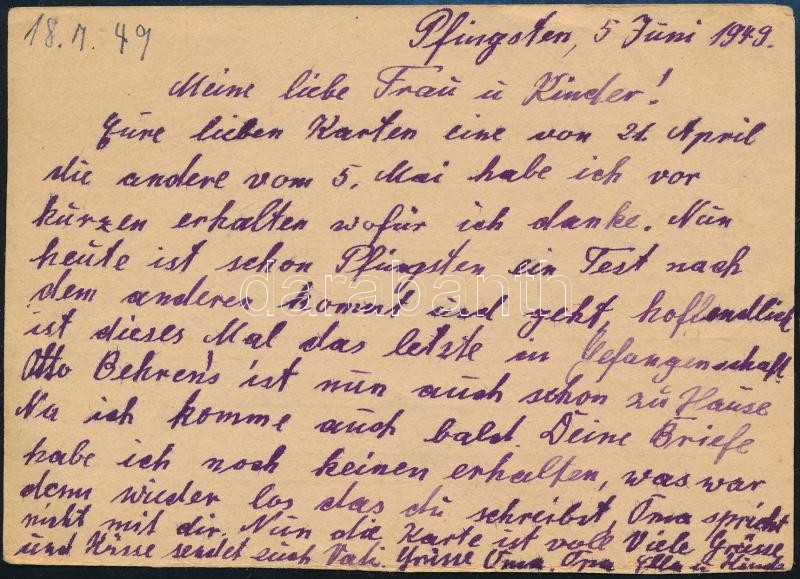 18.7.49
Pfingsten, 5 Juni 1949.
Meine liebe Frau u Kinder!
Eure lieben Karten eine von 21. April
die andere vom 5. Mai habe ich vor
kurzen erhalten wofür ich danke. Nun
heute ist schon Pfingsten ein Test nach
dem anderen kommt und geht, hoffendlich
ist dieses Mal das letzte in Gefangenschaft.
Otto Behrens ist nun auch schon zu Hause
Na ich komme auch bald. Deine Briefe
habe ich noch keinen erhalten, was war
denn wieder los das du schreibst, Oma spricht
nicht mit dir. Nun die Karte ist voll Viele Grüsse
und Küsse sendet euch Vati. Grüsse Oma. Opa Ella u
darabanth